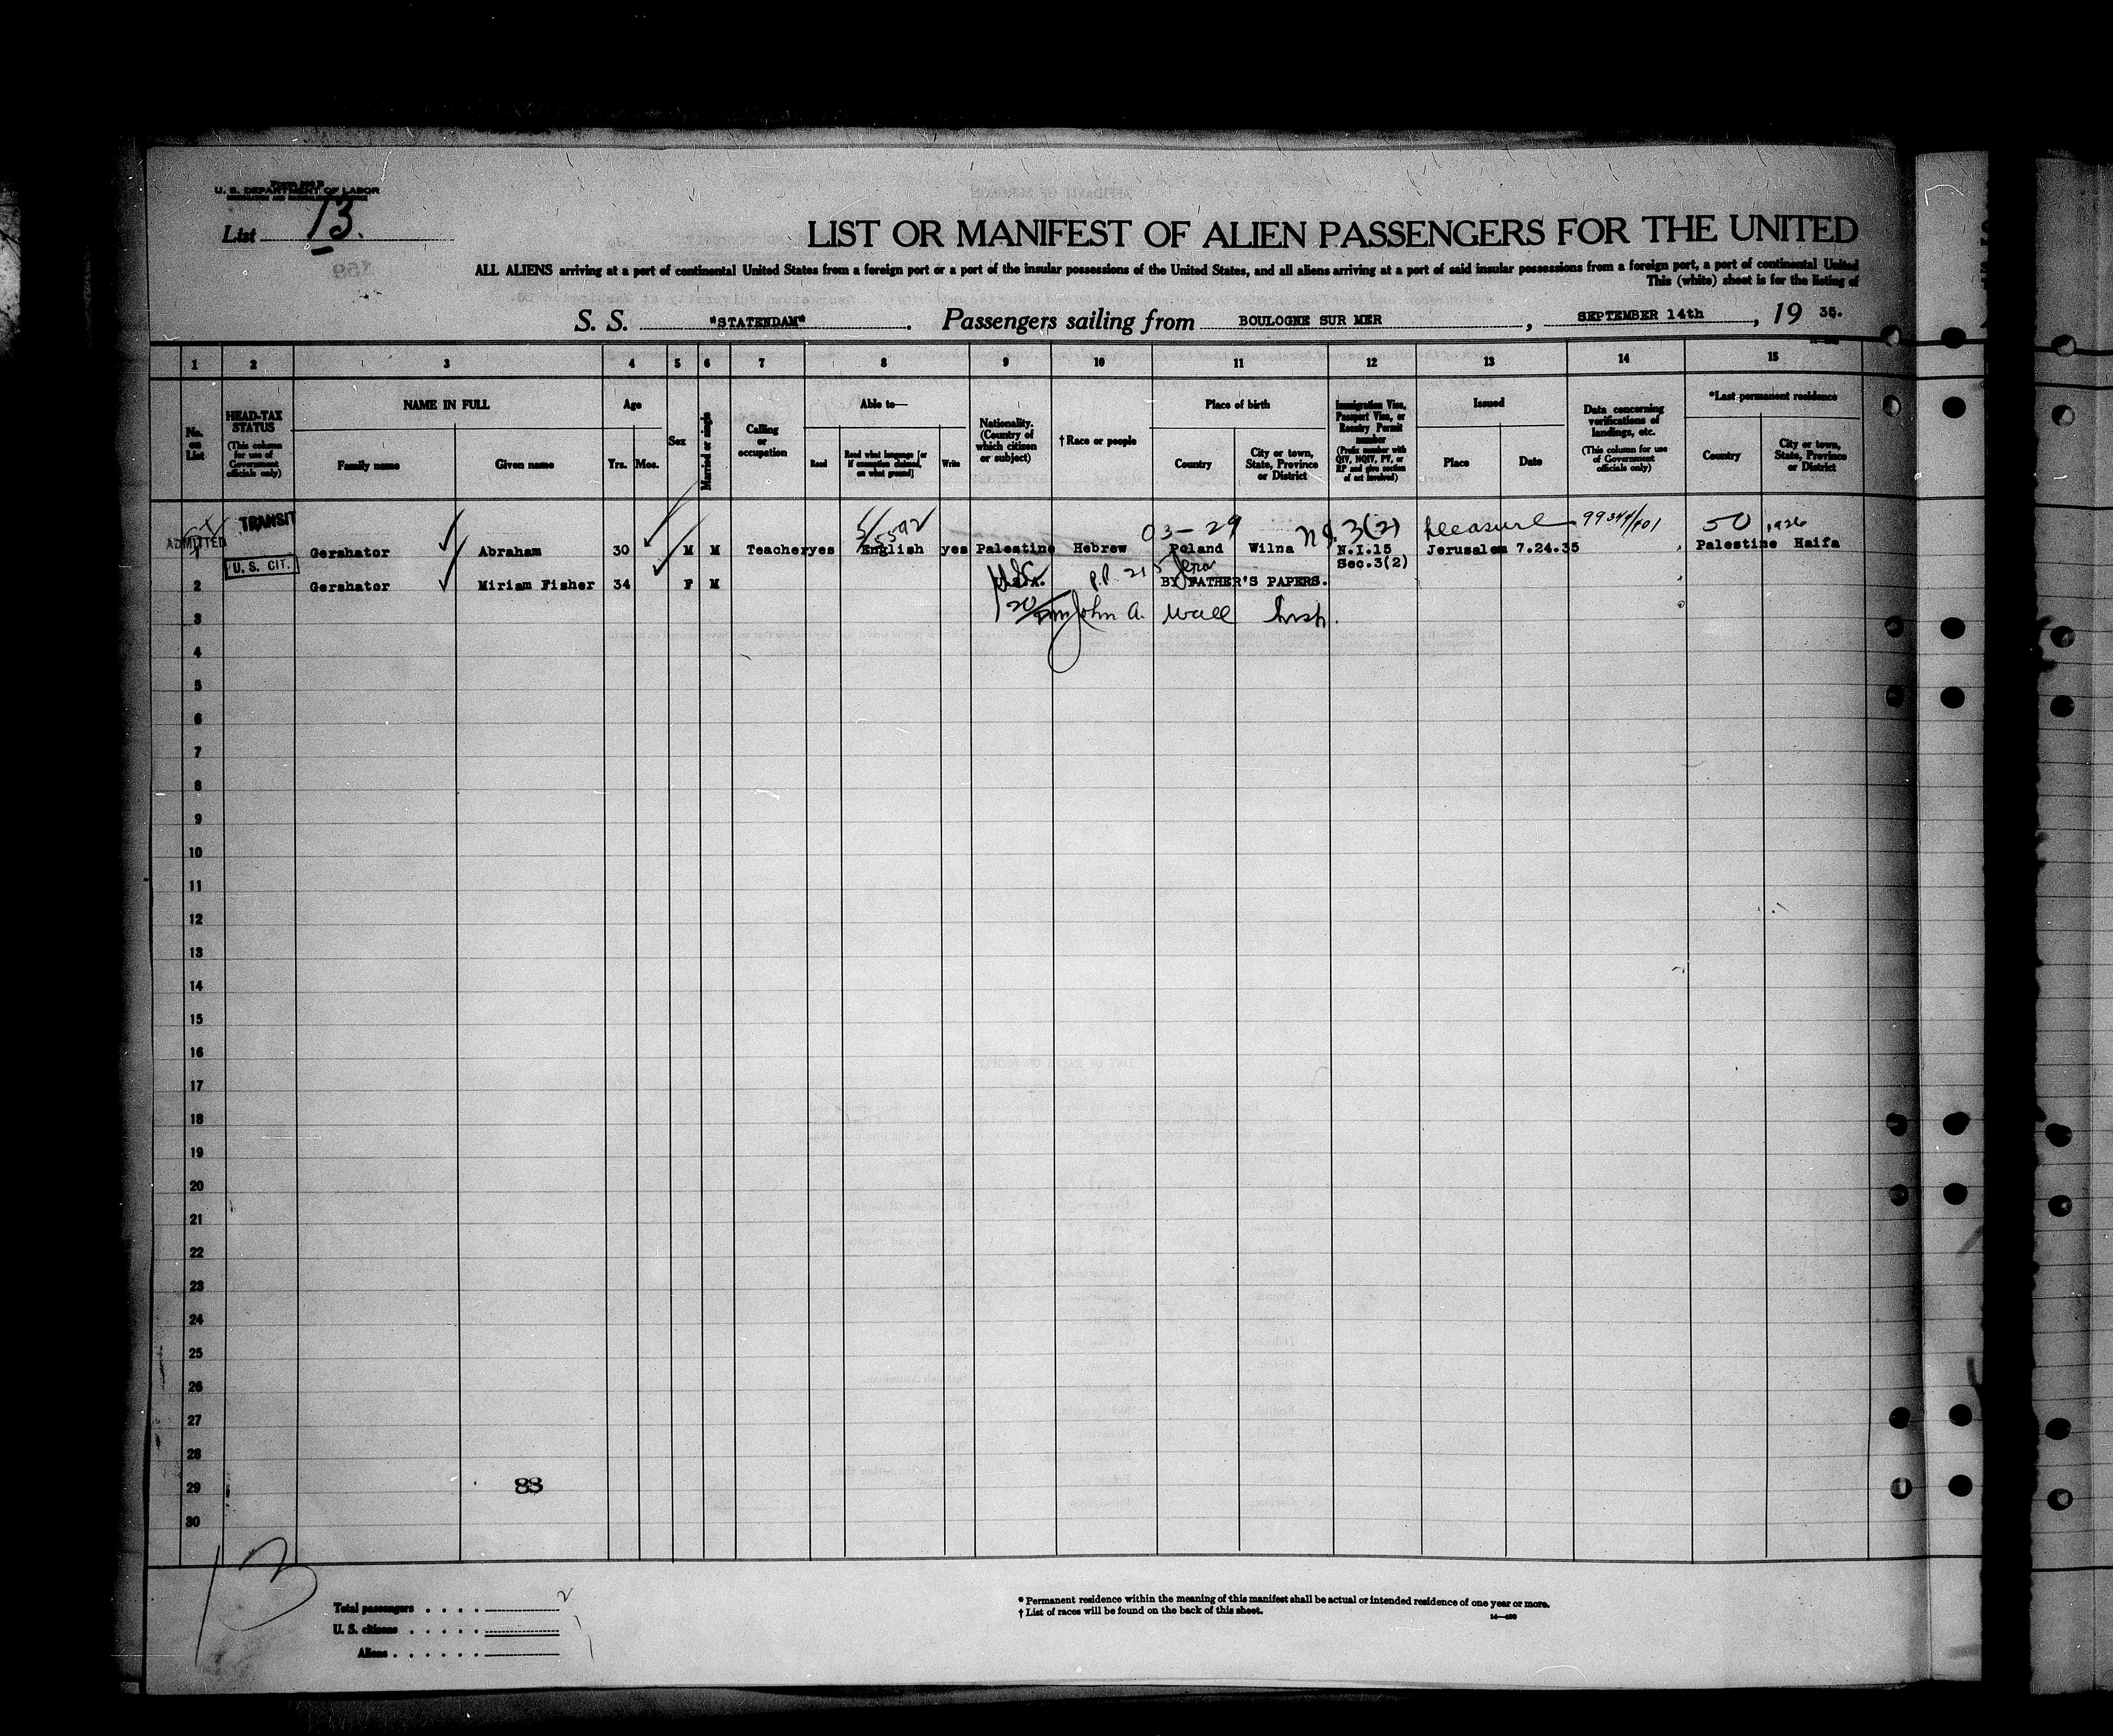 U. S. DEPARTMENT OF LABOR
List 13.
LIST OR MANIFEST OF ALIEN PASSENGERS FOR THE UNITED
ALL ALIENS arriving at a port of continental United States from a foreign port or a port of the insular possessions of the United States, and all aliens arriving at a port of said insular possessions from a foreign port, a port of continental United
This (white) sheet is for the listing of
S. S. "STATENDAM". Passengers sailing from BOULOGNE SUR MER, SEPTEMBER 14th, 19 35.
1 2 3 4 5 6 7 8 9 10 11 12 13 14 15
No. on List
HEAD-TAX STATUS (This column for use of Government officials only)
NAME IN FULL
Family name
Given name
Age
Yrs. Mos.
Sex
Married or single
Calling or occupation
Able to—
Read
Read what language [or if exemption claimed, on what ground]
Write
Nationality. (Country of which citizen or subject)
† Race or people
Place of birth
Country
City or town, State, Province or District
Immigration Visa, Passport Visa, or Reentry Permit number (Prefix number with QIV, NQIV, PV, or RP and give section of act involved)
Issued
Place
Date
Data concerning verifications of landings, etc. (This column for use of Government officials only)
*Last permanent residence
Country
City or town, State, Province or District
TRANSIT 03-29 3(2) pleasure 50 1926
ADMITTED
1 Gershator Abraham 30 M M Teacher yes English yes Palestine Hebrew Poland Wilna N.I.15 Jerusalem 7.24.35 Palestine Haifa
Sec.3(2)
U. S. CIT.
2 Gershator Miriam Fisher 34 F M BY FATHER'S PAPERS.
3 John A. Wall Insp.
4
5
6
7
8
9
10
11
12
13
14
15
16
17
18
19
20
21
22
23
24
25
26
27
28
29 88
30
13
Total passengers . . . . 2
U. S. citizens . . . . .
Aliens . . . . . .
* Permanent residence within the meaning of this manifest shall be actual or intended residence of one year or more.
† List of races will be found on the back of this sheet.